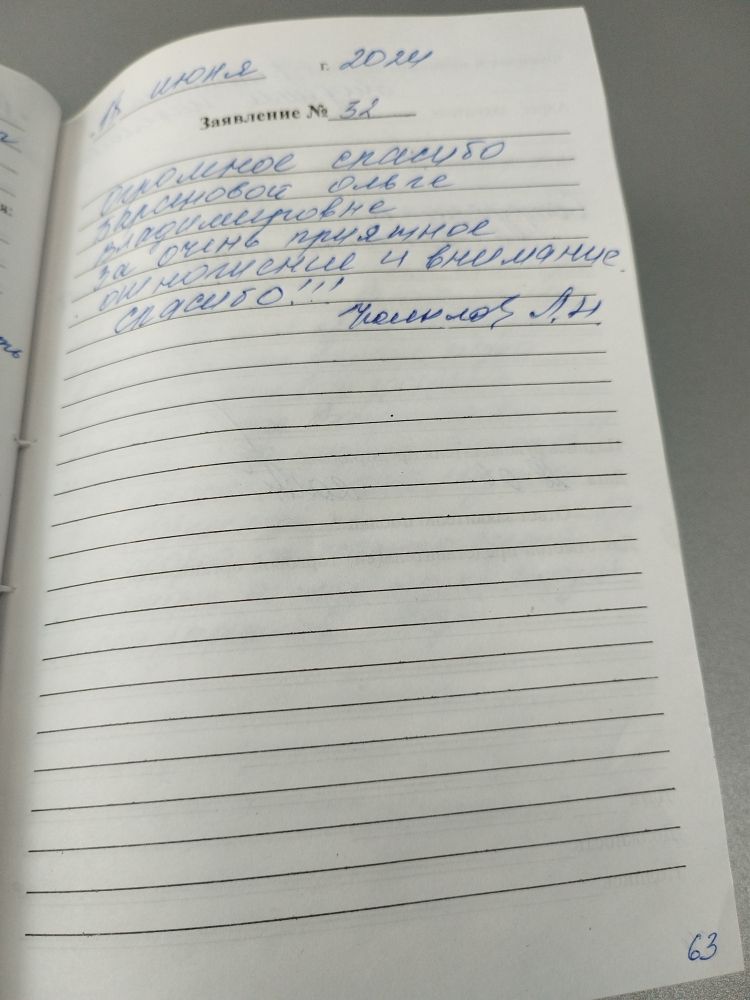 18 июня г. 2024
Заявление № 32
Огромное спасибо
Ольге
Владимировне
за очень приятное
отношение и внимание.
спасибо!!!
63